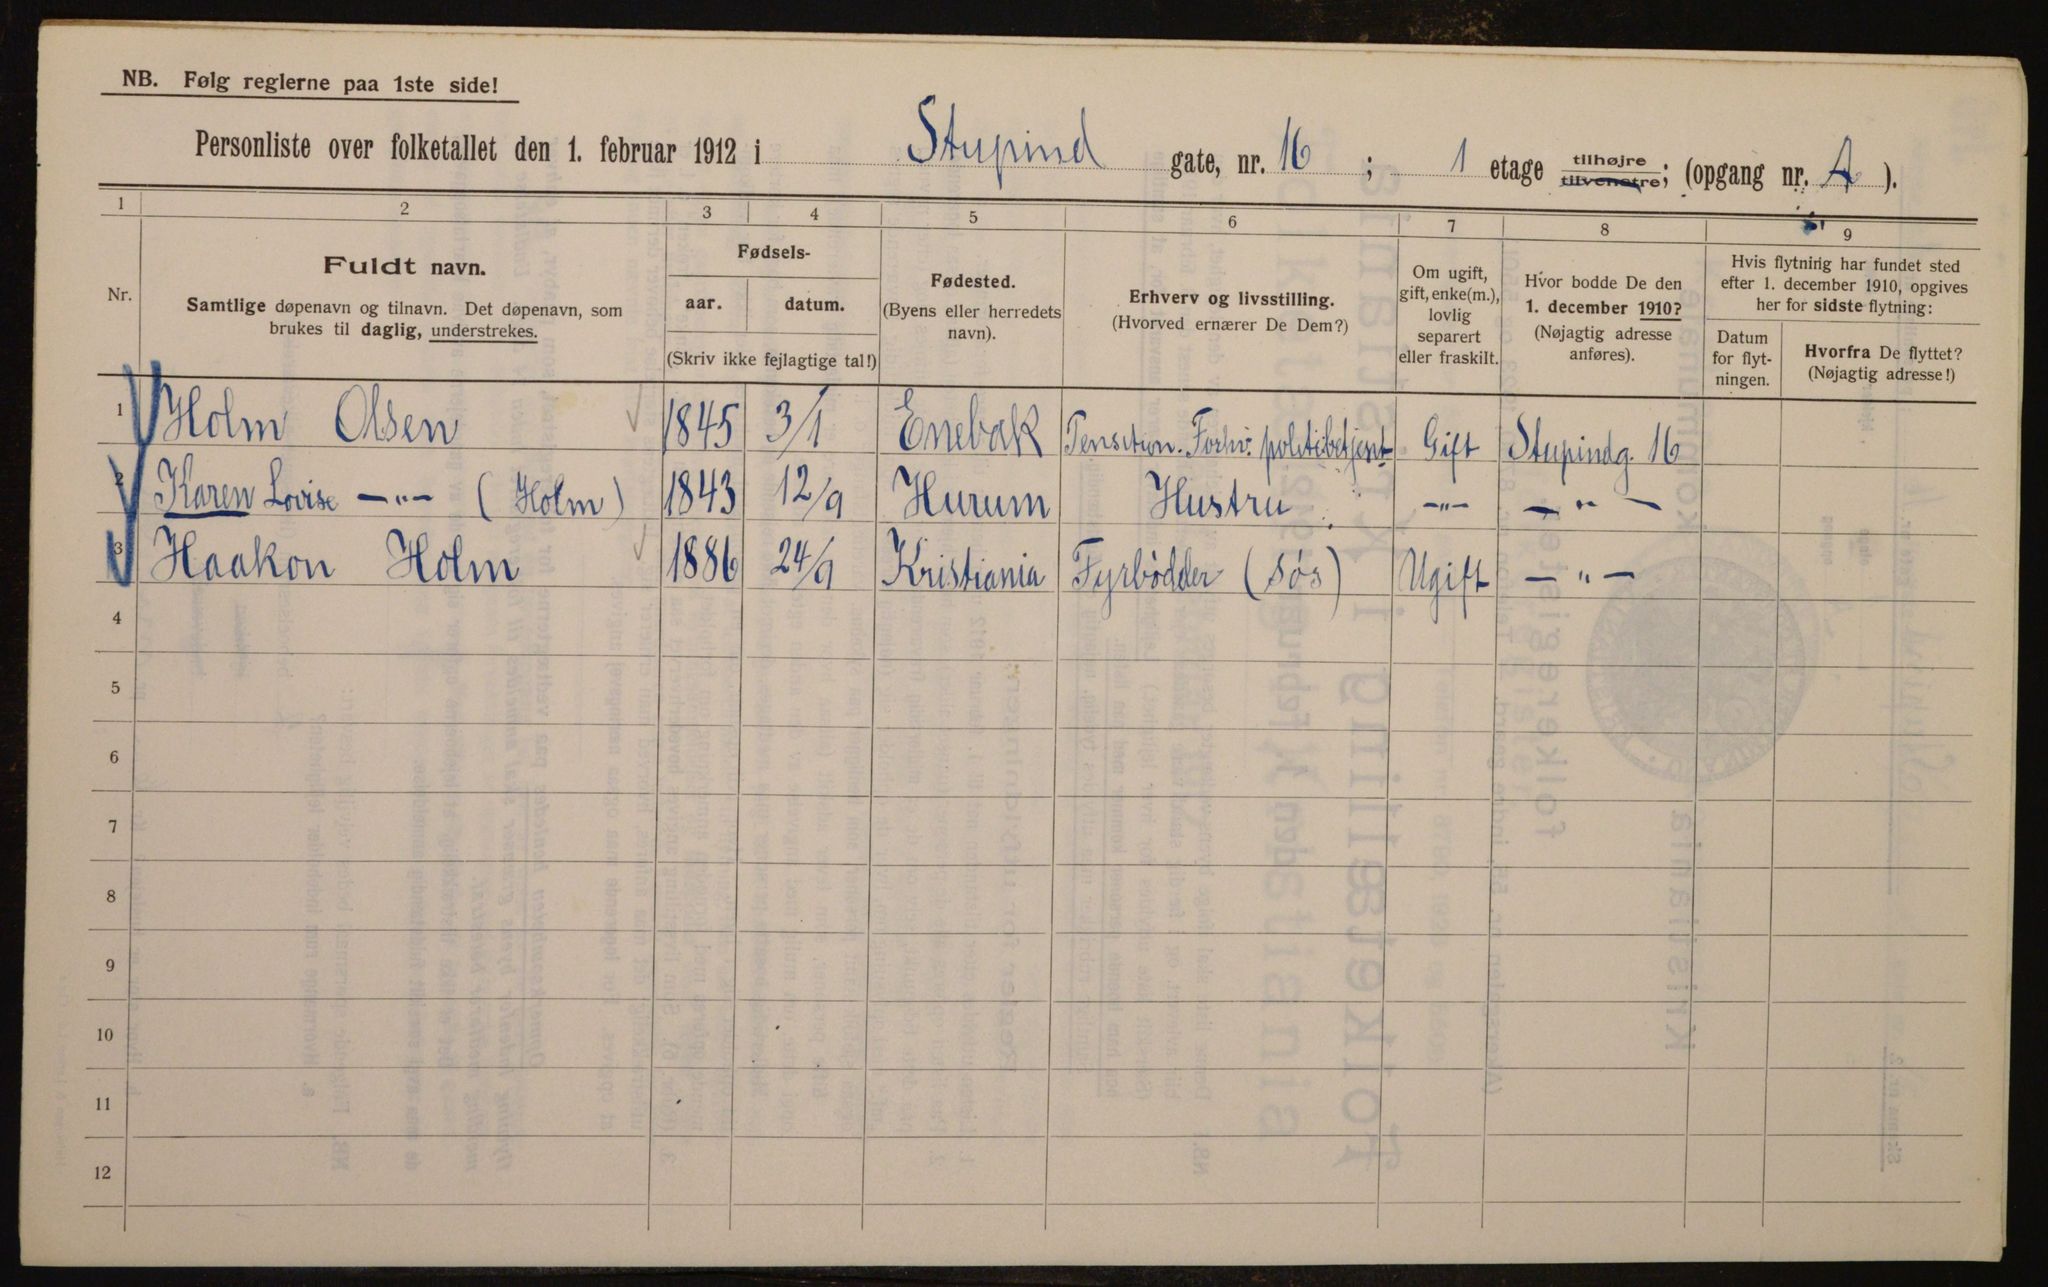 NB. Følg reglerne paa 1ste side!
Personliste over folketallet den 1. februar 1912 i Stupind gate, nr. 16; 1 etage tilhøjre tilvenstre; (opgang nr. A).
1 2 3 4 5 6 7 8 9
Nr.
Fuldt navn.
Samtlige døpenavn og tilnavn. Det døpenavn, som
brukes til daglig, understrekes.
Fødsels-
aar. datum.
(Skriv ikke fejlagtige tal!)
Fødested.
(Byens eller herredets
navn).
Erhverv og livsstilling.
(Hvorved ernærer De Dem?)
Om ugift,
gift, enke(m.),
lovlig
separert
eller fraskilt.
Hvor bodde De den
1. december 1910?
(Nøjagtig adresse
anføres).
Hvis flytning har fundet sted
efter 1. december 1910, opgives
her for sidste flytning:
Datum
for flyt-
ningen.
Hvorfra De flyttet?
(Nøjagtig adresse!)
1 Holm Olsen 1845 3/1 Enebak Pension. Forhv. politibetjent Gift Stupindg. 16
2 Karen Lovise —"— (Holm) 1843 12/9 Hurum Hustru —"— — " —
3 Haakon Holm 1886 24/9 Kristiania Fyrbödder (søs) Ugift — " —
4
5
6
7
8
9
10
11
12